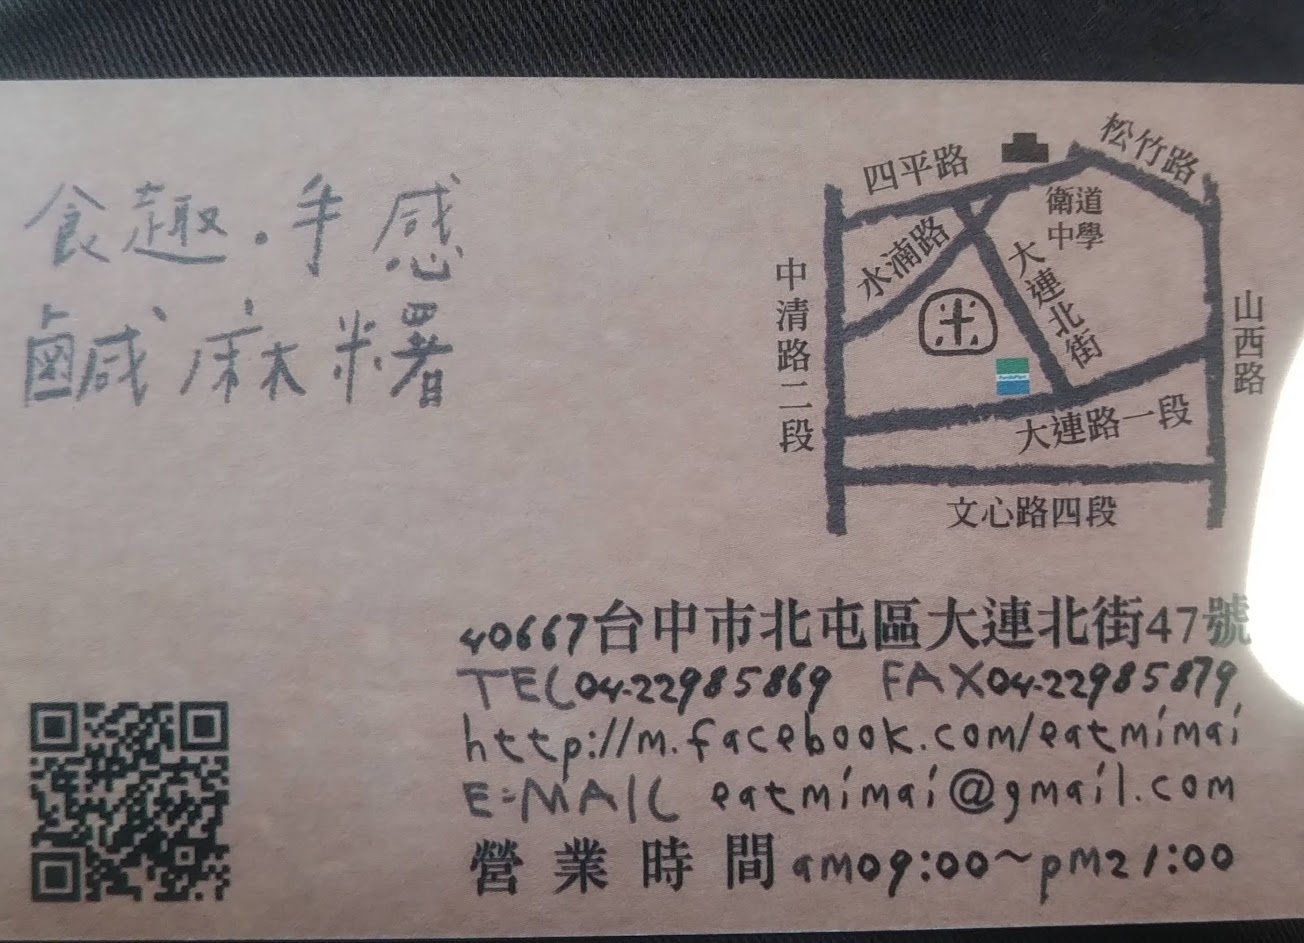 食趣.手感
鹹麻糬
四平路
松竹路
衛道
中學
水湳路
大連北街
中清路二段
米
FamilyMart
山西路
大連路一段
文心路四段
40667台中市北屯區大連北街47號
TEL04-22985869 FAX04-22985879
http://m.facebook.com/eatmimai
E-MAIL eatmimai@gmail.com
營業時間am09:00~pm21:00